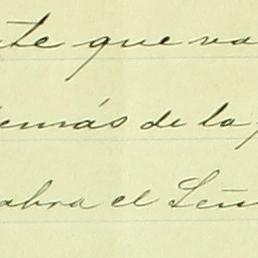 te que va
demás de la
abra el Señ